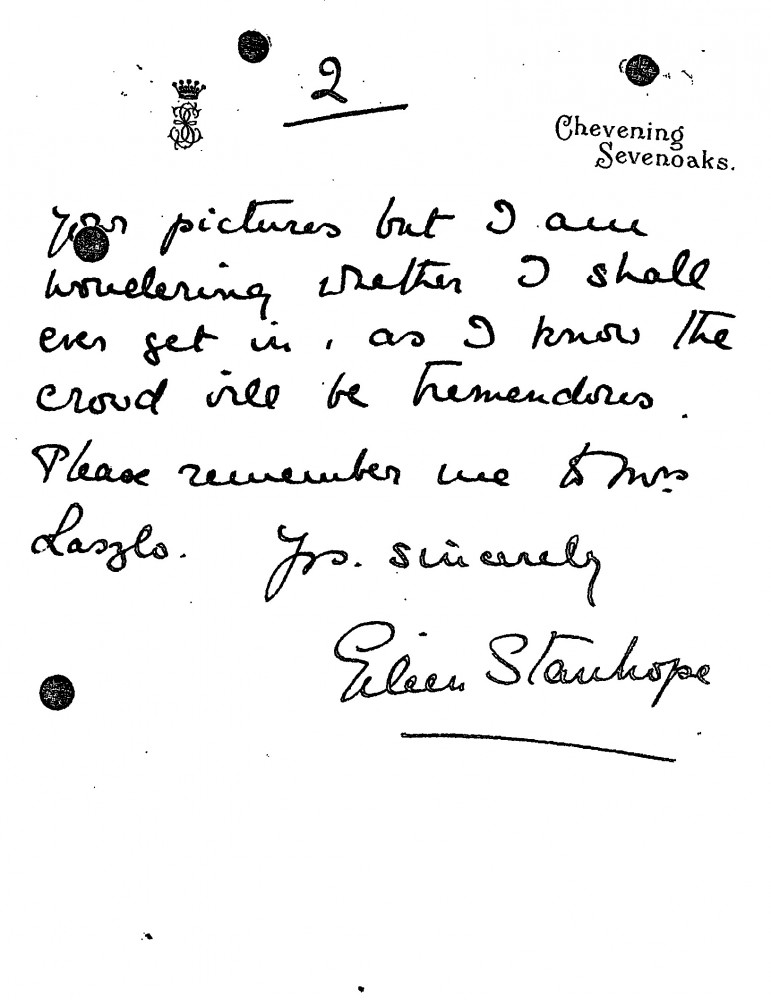 2
Chevening
Sevenoaks.
your pictures but I am
wondering whether I shall
ever get in, as I know the
crowd will be tremendous.
Please remember me to Mrs
Laszlo. Yrs. sincerely
Eileen Stanhope